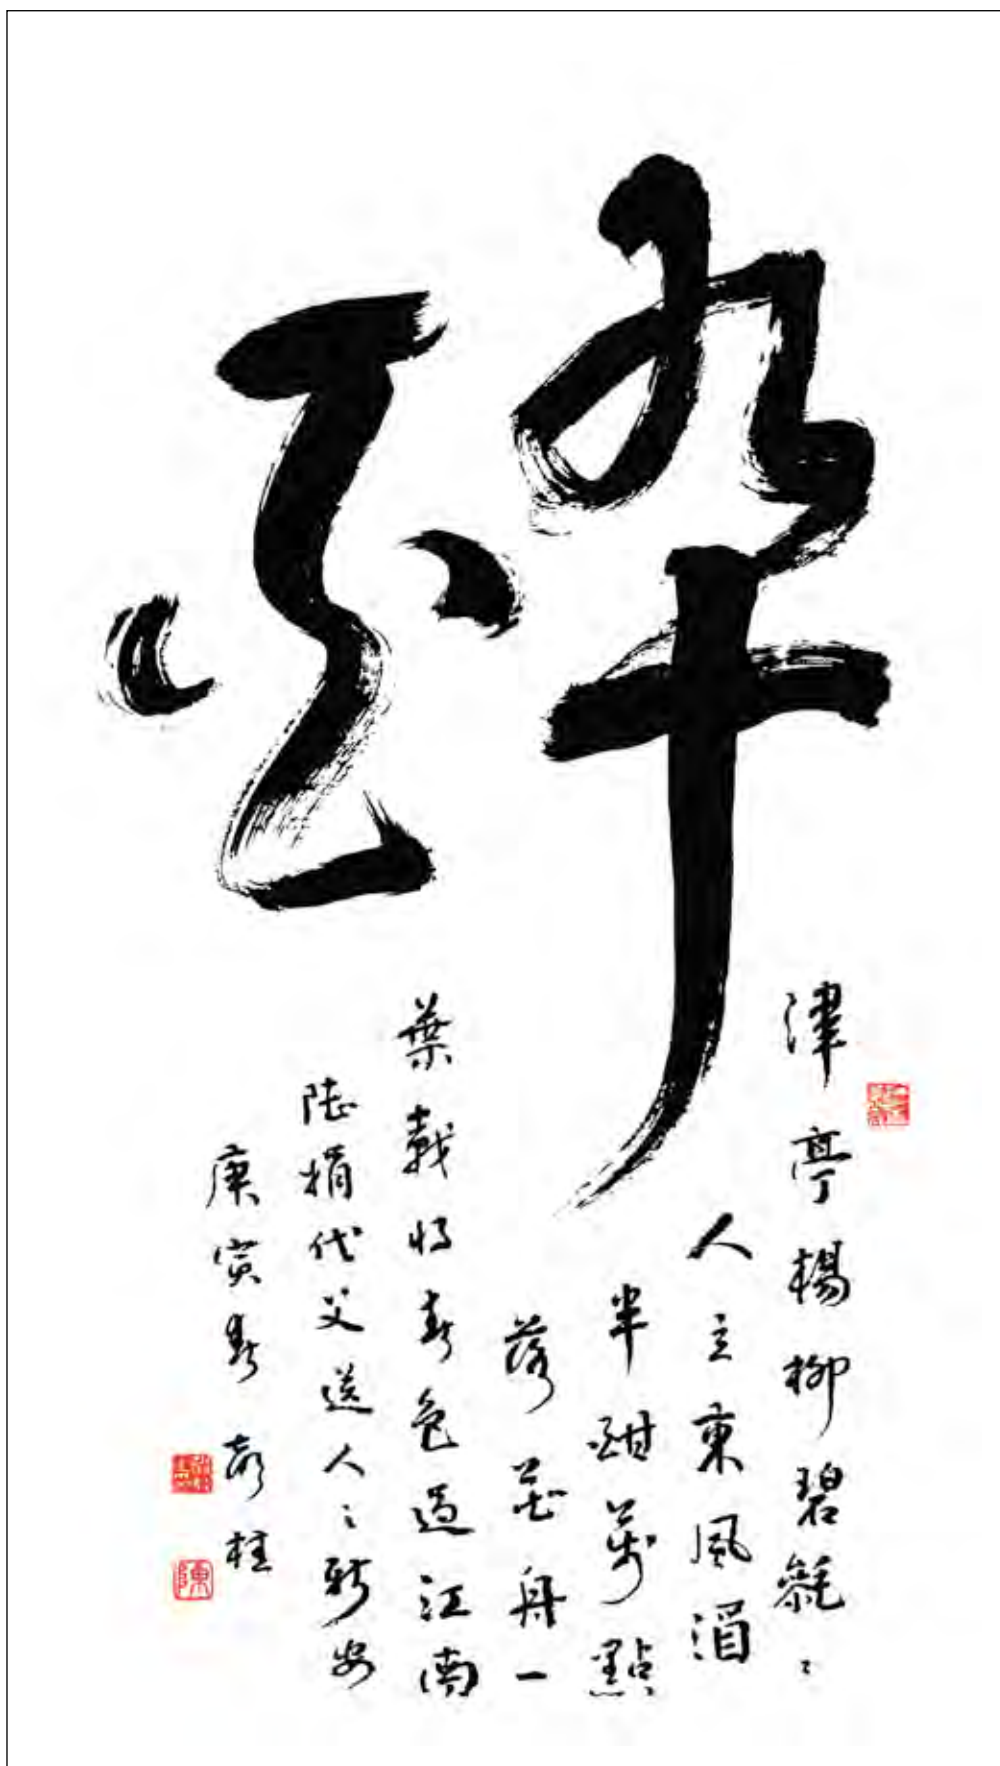 酔
津亭楊柳碧毿〻
人立東風酒
半酣萬點
落花舟一
葉載將春色過江南
陸娟代父送人之新安
庚寅春
陳